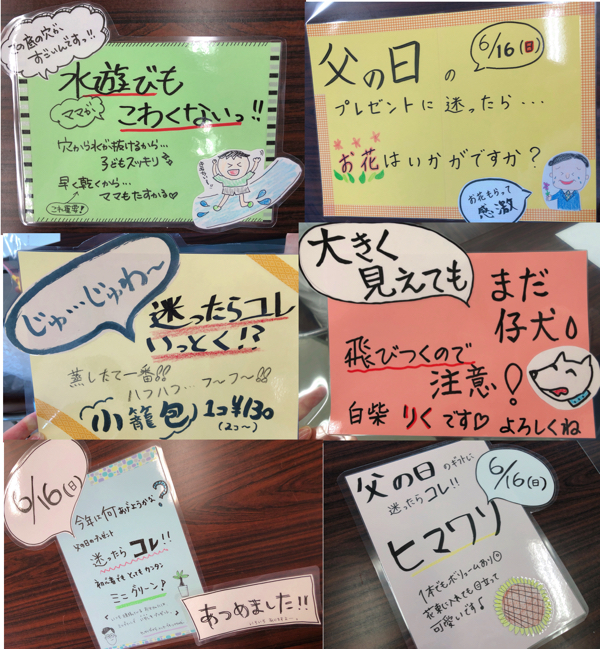 この底の穴が
すごいんですっ!!
水遊びも
ママが
こわくないっ!!
穴から水が抜けるから…
子どもスッキリ
早く乾くから…
ママもたすかる♡
これ重要!
父の日の
6/16(日)
プレゼントに迷ったら…
お花はいかがですか?
お花もらって
感激
じゅ…じゅわ~
迷ったらコレ
いっとく!?
蒸したて一番!!
ハフハフ…フ~フ~!!
小籠包 1コ¥130
(2コ~)
大きく
見えても
まだ
仔犬
飛びつくので
注意!
白柴 りくです♡ よろしくね
6/16(日)
今年は何あげようかな?
父の日のプレゼント
迷ったら コレ!!
初心者でもとってもカンタン
ミニグリーン♪
あつめました!!
父の日のギフトに
迷ったらコレ!!
6/16(日)
ヒマワリ
1本でもボリュームあり◎
花束に入れても目立って
可愛いです♪